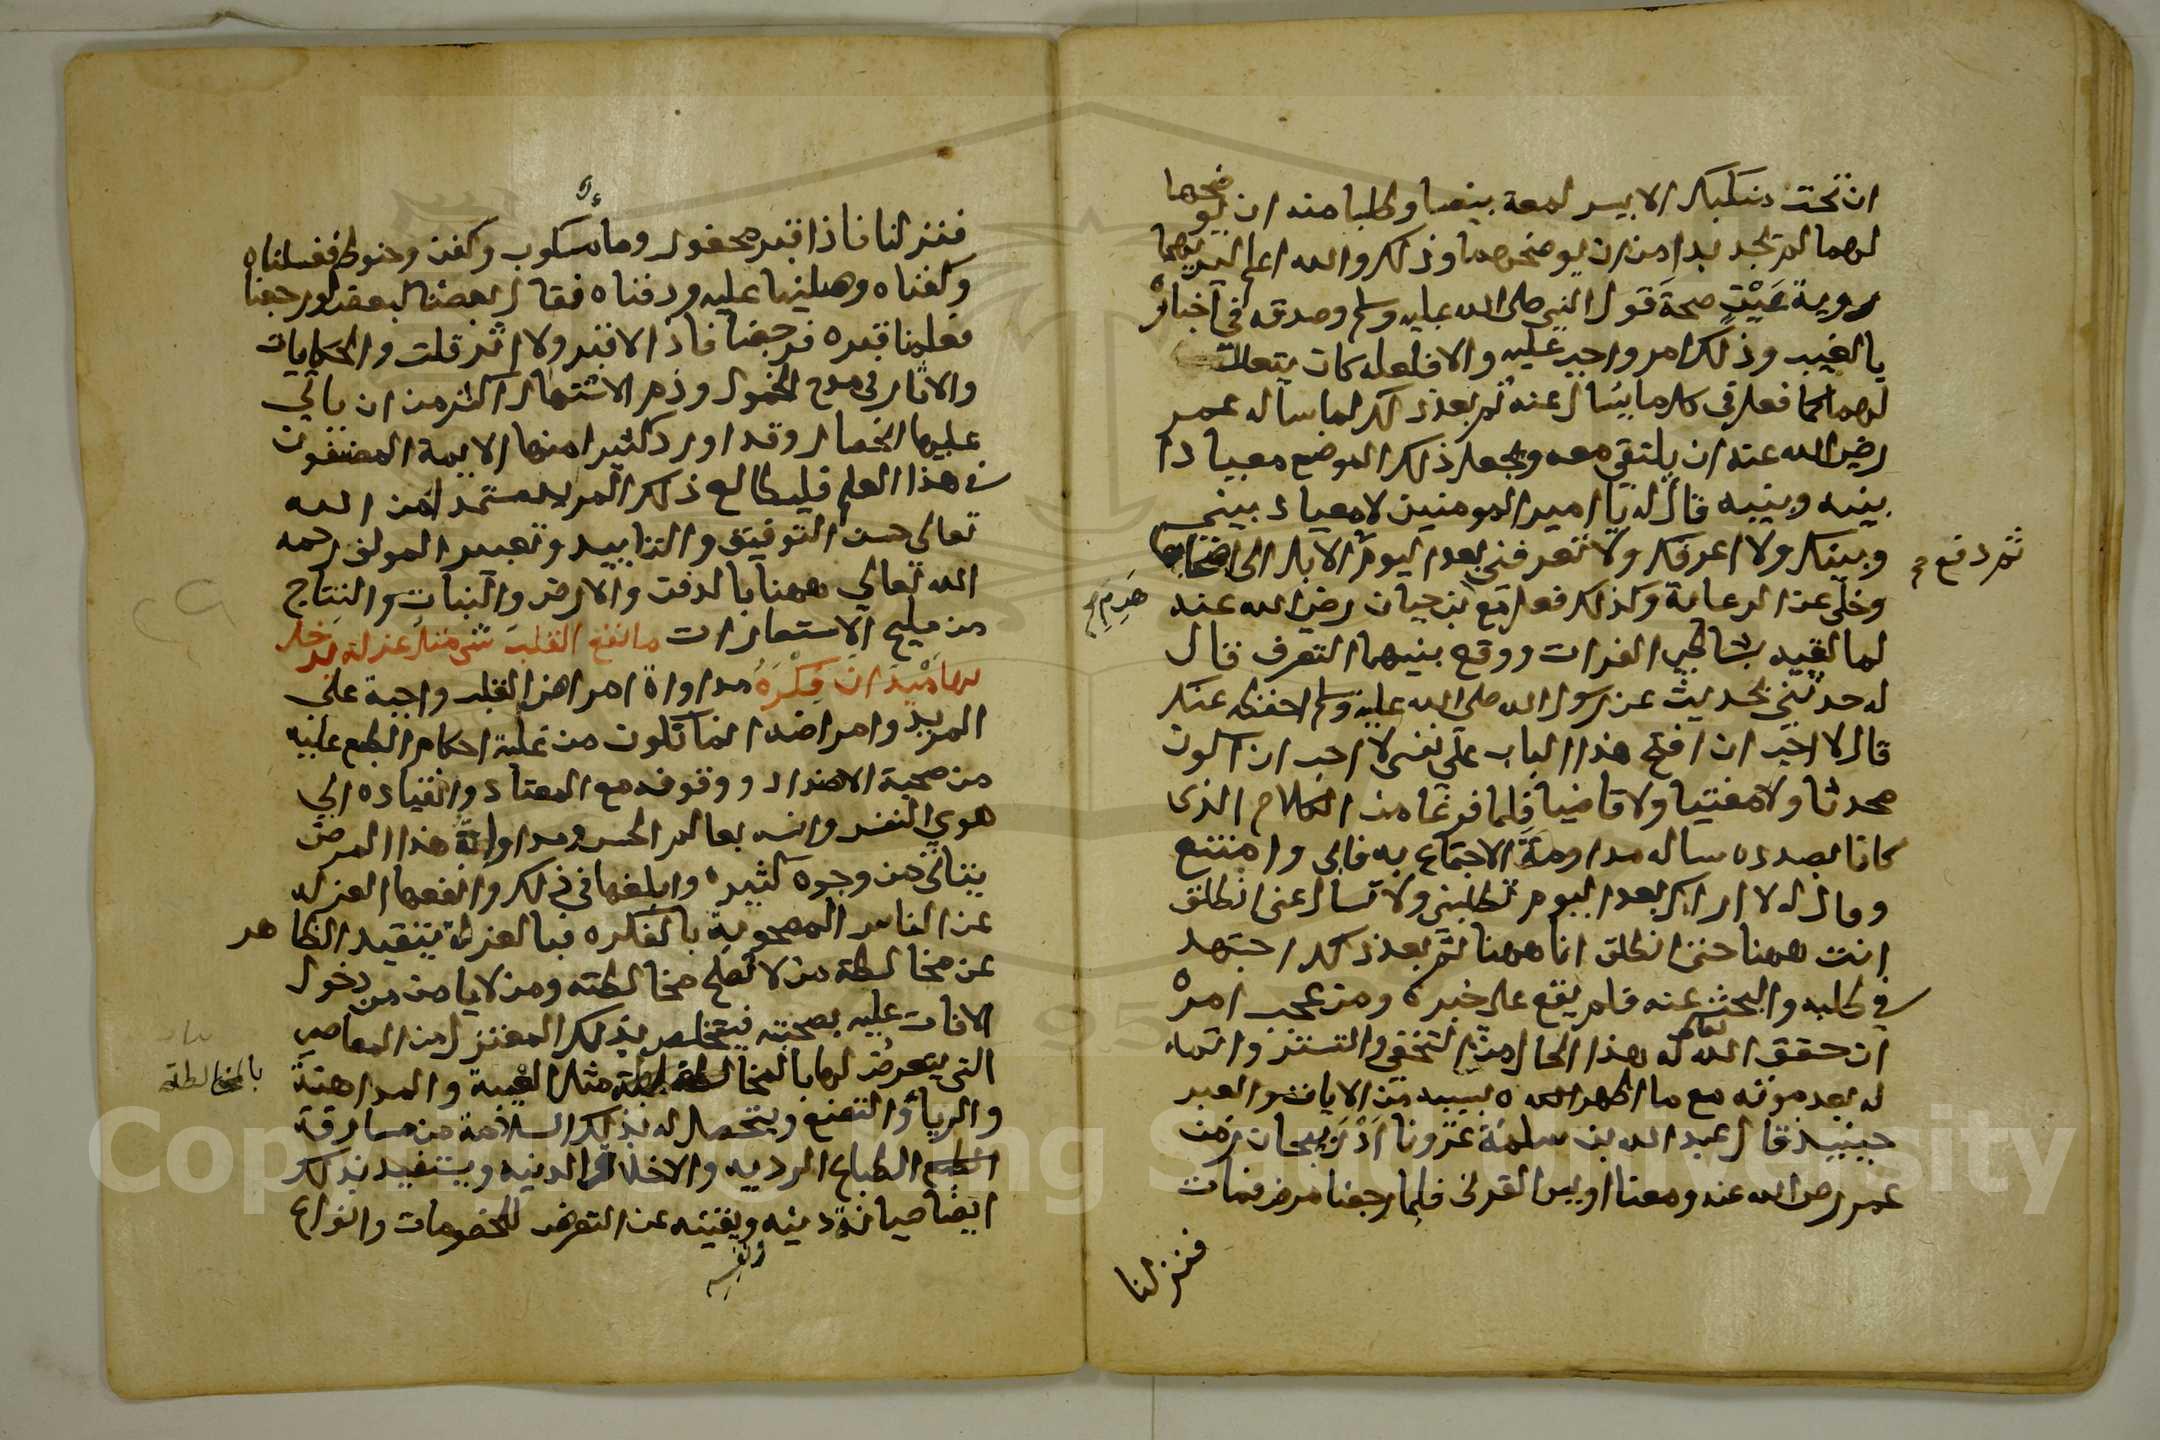 ان تحت منكبك الايسر لمعة بيضا وطلبا منه ان يوضحها
لهما لم يجد بدا من ان يوضحهما وذلك والله اعلم ليريهما
روية عين صحة قول النبي صلى الله عليه وسلم وصدقه في اخباره
بالغيب وذلك امر واجب عليه والا فلعله كان يتعلل
لهما كما فعل في كل ما يسال عنه ثم بعد ذلك لما ساله عمر
رضي الله عنه ان يلتقي معه ويجعل ذلك الموضع ميعادا
بينه وبينه قال له يا امير المومنين لا ميعاد بيني
وبينك ولا اعرفك ولا تعرفني بعد اليوم الابل الى اصحابها
ثم دفع
وخلى عن الرعاية وكذلك فعل مع بن حيان رضي الله عنه
هرم
لما لقيه بشاطي الفرات ووقع بينهما التعرف قال
له حدثني بحديث عن رسول الله صلى الله عليه وسلم احفظه عنك
قال لا احب ان افتح هذا الباب على نفسي لا احب ان اكون
محدثا ولا مفتيا ولا قاضيا فلما فرغا من الكلام الذى
كانا بصدده ساله مداومة الاجتماع به فابى وامتنع
وقال له لا اراك بعد اليوم تطلبني ولا تسال عني انطلق
انت ههنا حتى انطلق انا ههنا ثم بعد ذلك اجتهد
في طلبه والبحث عنه فلم يقع على خبره ومن عجب امره
ان حقق الله تعالى له هذا الحال من التخفي والتستر واتمه
له بعد موته مع ما اظهر الله بسببه من الايات والعبر
حينيذ قال عبد الله بن سلمة غزونا اذربيجان زمن
عمر رضي الله عنه ومعنا اويس القرنى فلما رجعنا مرض فمات
فنزلنا
فنزلنا فاذا قبر محفور وماء مسكوب وكفن وحنوط فغسلناه
وكفناه وصلينا عليه ودفناه فقال بعضنا لبعض لو رجعنا
فعلمنا قبره فرجعنا فاذا لا قبر ولا اثر قلت والحكايات
والاثار في مدح الخمول وذم الاشتهار اكثر من ان ياتي
عليها انحصار وقد اورد كثيرا منها الايمة المصنفون
في هذا العلم فليطالع ذلك المريد مستمدا من الله
تعالى حسن التوفيق والتاييد وتعبير المولف رحمه
الله تعالى ههنا بالدفن والارض والنبات والنتاج
من مليح الاستعارات ما نفع القلب شي مثل عزلة يدخل
بها ميدان فكرة مداواة امراض القلب واجبة على
المريد وامراضه انما تكون من غلبة احكام الطبع عليه
من صحبة الاضداد ووقوفه مع المعتاد وانقياده الى
هوي النفس وانسه بعالم الحس ومداواة هذا المرض
يتاتى من وجوه كثيرة وابلغها في ذلك وانفعها العزلة
عن الناس المصحوبة بالفكره فبالعزلة يتقيد الظاهر
عن مخالطة من لا تصلح مخالطته ومن لا يامن من دخول
الافات عليه بصحبته فيتخلص بذلك المعتزل من المعاصي
التي يتعرض لها بالمخالطة مثل الغيبة والمداهنة
بالمخالطة
والرياء والتصنع ويتحصل له بذلك السلامة من مسارقة
الطباع الرديه والاخلاق الدنيه ويستفيد بذلك
ايضا صيانة دينه ونفسه عن التعرض للخصومات وانواع